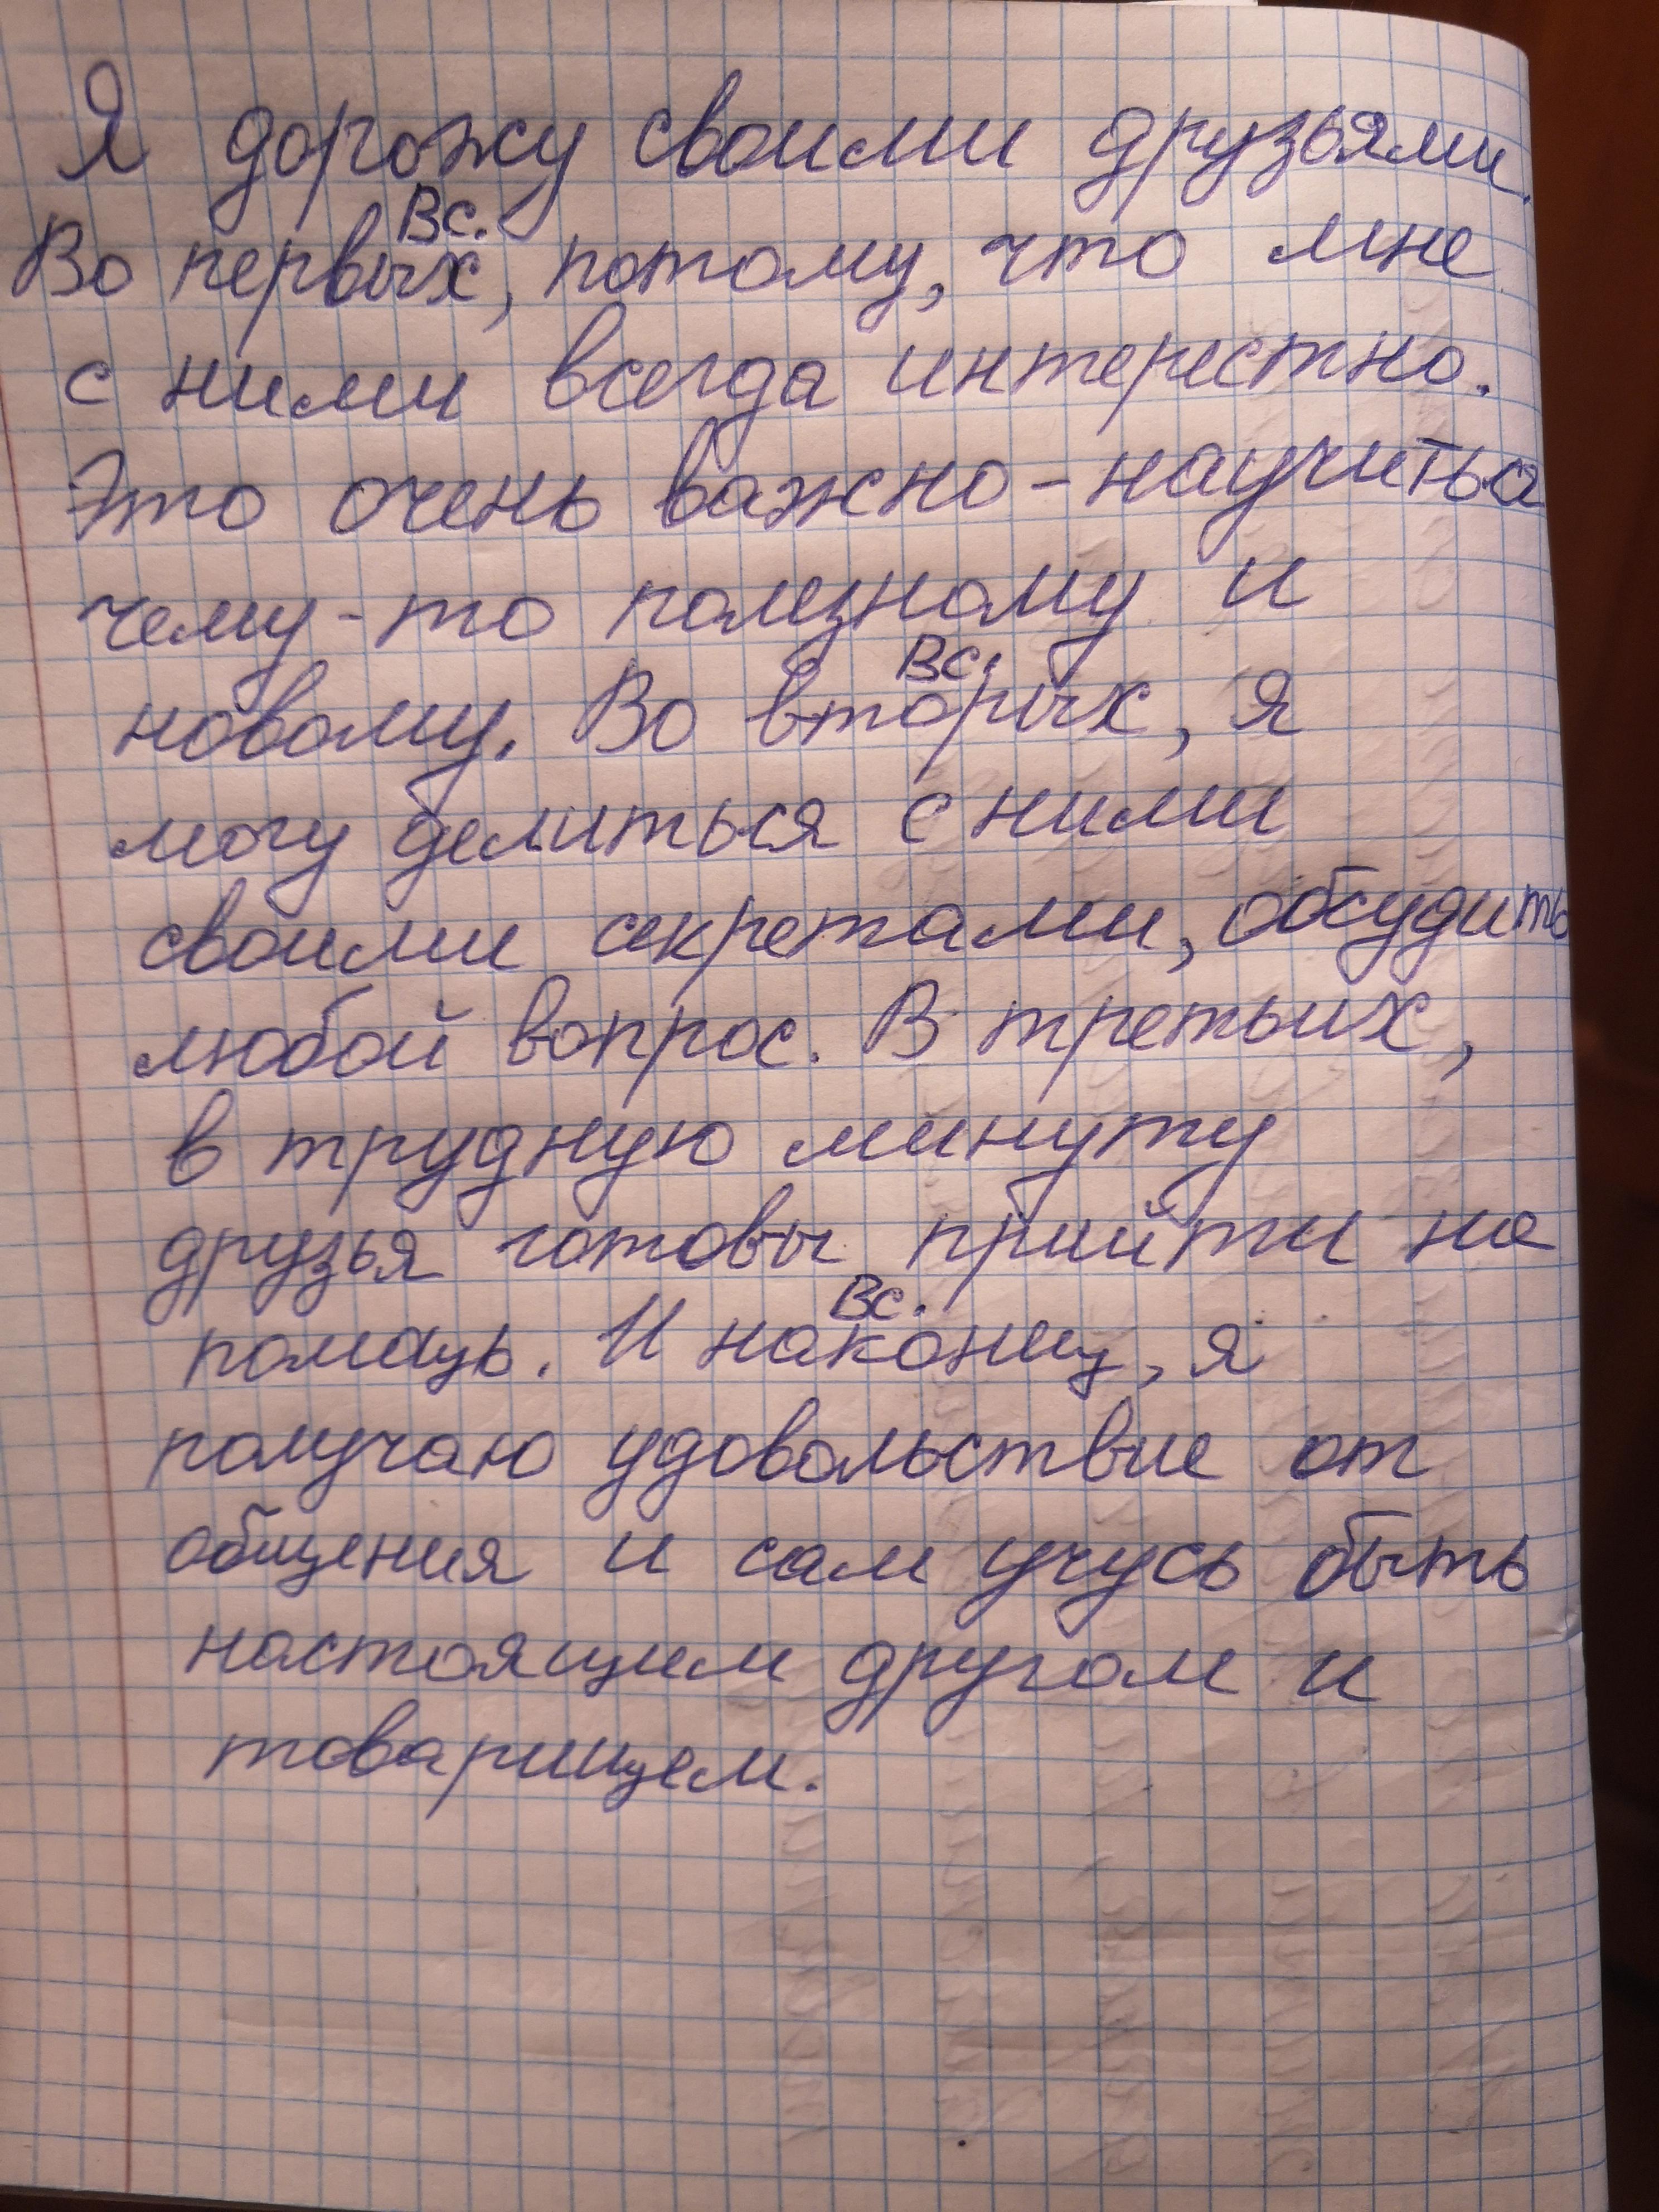 Я дорожу своими друзьями.
Вс.
Во первых, потому, что мне
с ними всегда интерестно.
Это очень важно - научиться
чему-то полезному и
Вс.
новому. Во вторых, я
могу делиться с ними
своими секретами, обсудить
любой вопрос. В третьих,
в трудную минуту
друзья готовы прийти на
Вс.
помощь. И наконец, я
получаю удовольствие от
общения и сам учусь быть
настоящим другом и
товарищем.